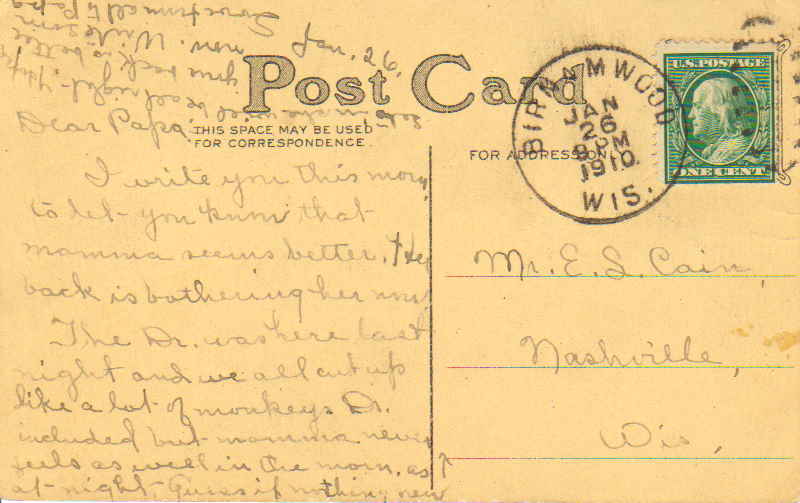 Post Card
THIS SPACE MAY BE USED
FOR CORRESPONDENCE.
FOR ADDRESS ONLY
BIRNAMWOOD
JAN
26
8 PM
1910
WIS.
U.S. POSTAGE
ONE CENT
Jan. 26.
Dear Papa,
I write you this morn
to let you know that
mamma seems better. Her
back is bothering her now
The Dr. was here last
night and we all cut up
like a lot of monkeys Dr.
included but mamma never
feels as well in the morn. as
at night Guess if nothing new
sets in she will be all right. Hope
your back is better
now. Write soon
Love from all to Papa
Mr. E. S. Cain,
Nashville,
Wis.